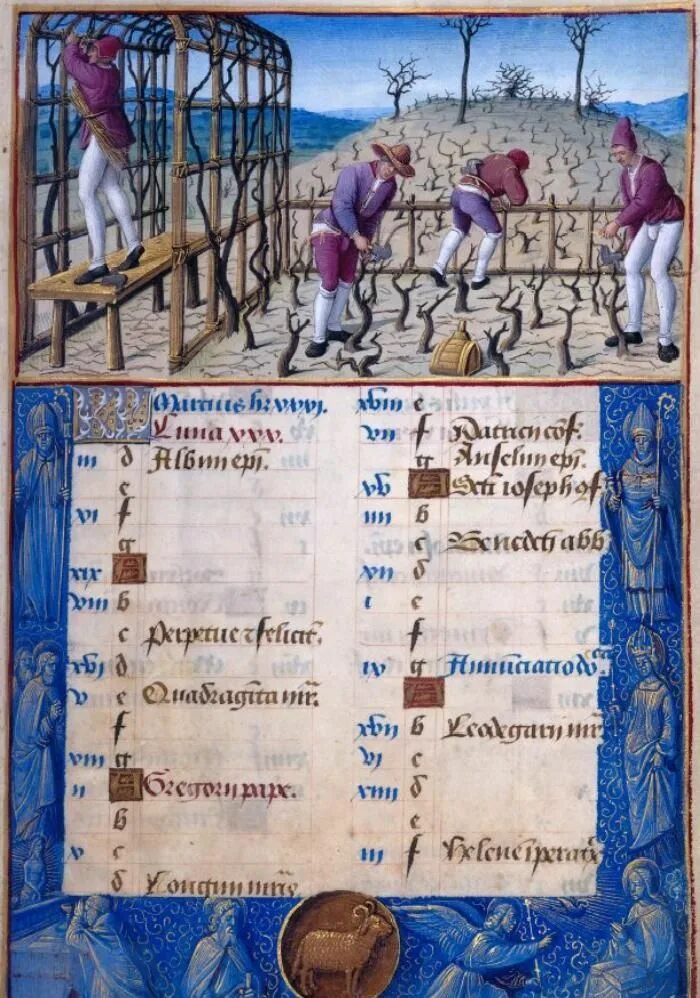 KL Martius ht xxxi.
Luna xxx.
iii d Albini epi.
e
vi f
g
xix A
viii b
c Perpetue ⁊ felicit.
xvi d
v e Quadraginta mr.
f
xiii g
ii A Gregorii pape.
b
x c
d Longini mris
xviii e
vii f Patricii cof.
g Anselmi epi.
xv A Scti ioseph
iiii b
c Benedicti abb
xii d
i e
f
ix g Annunciatio
A
xvii b Leodegarii mr
vi c
xiiii d
e
iii f Helene iperatx